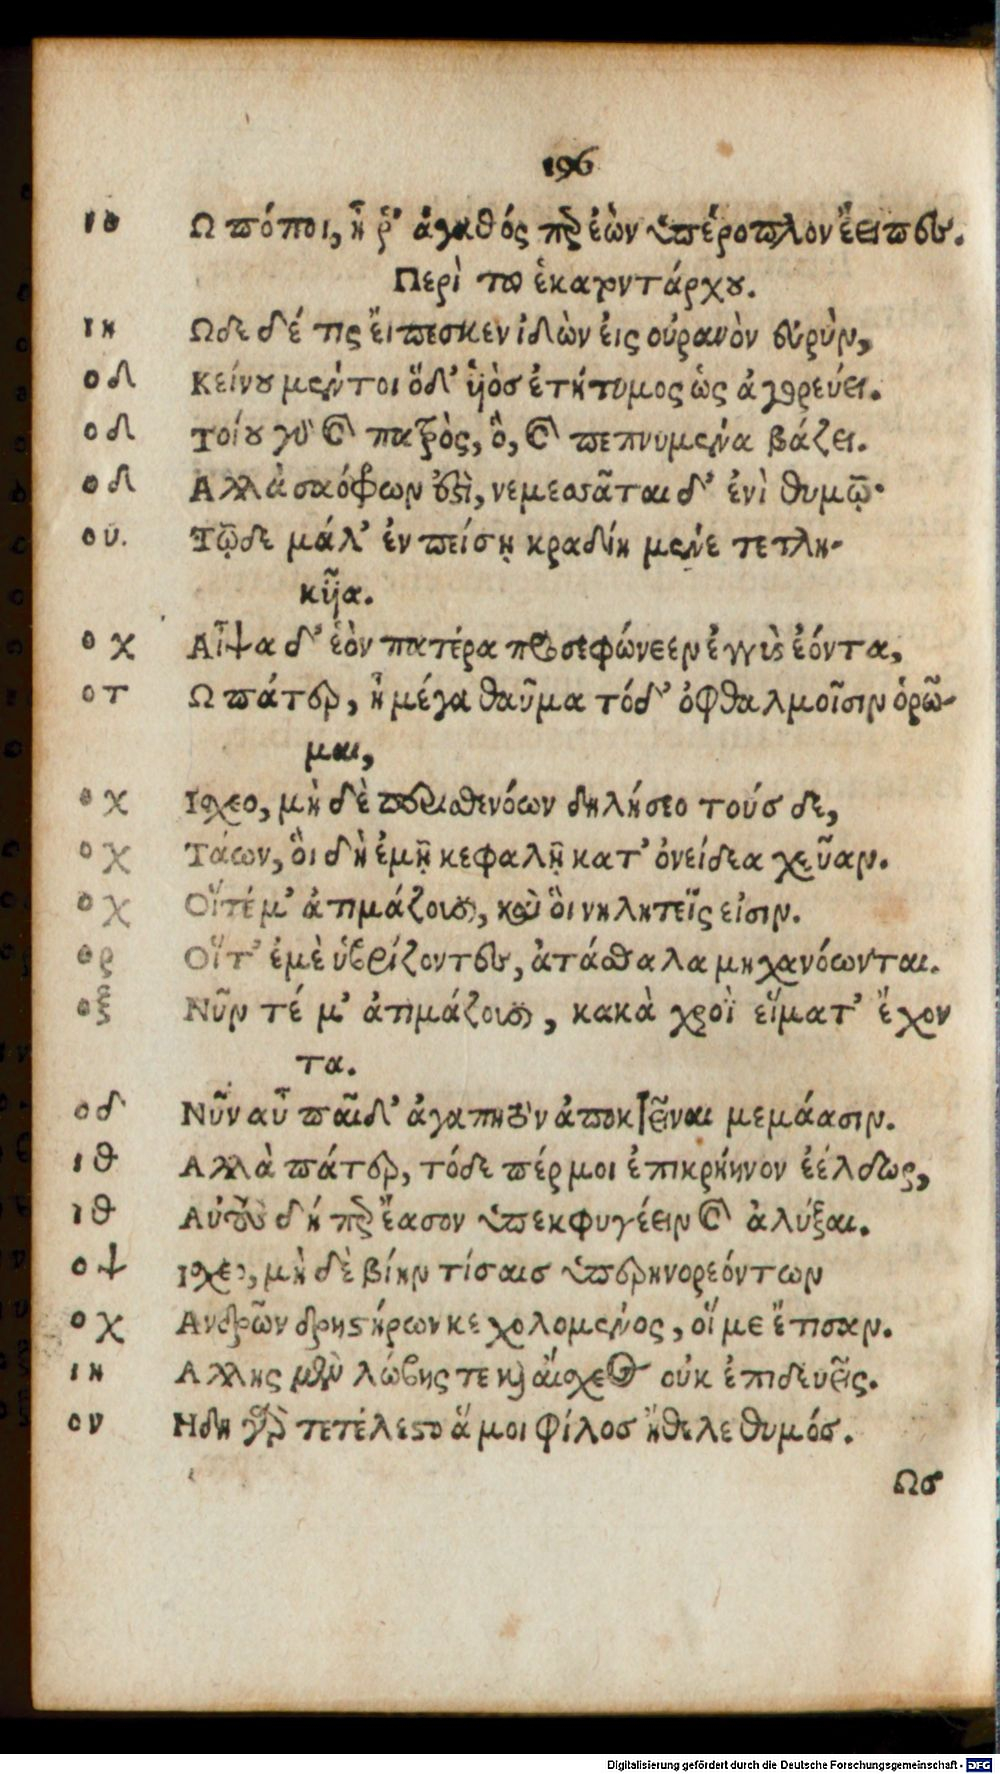 196
ιο Ω πόποι, ἦ ῥ' ἀγαθός περ ἐὼν ὑπέροπλον ἔειπες.
Περὶ τοῦ ἑκατοντάρχου.
ιη Ωδε δέ τις εἴπεσκεν ἰδὼν εἰς οὐρανὸν εὐρὺν,
οδ Κείνου μέντοι ὅδ' ὑιὸσ ἐτήτυμος ὡς ἀγορεύει.
οδ Τοίου γὰρ καὶ πατρὸς, ὃ, καὶ πεπνυμένα βάζει.
οδ Αλλὰ σαόφρων ἐστὶ, νεμεσσᾶται δ' ἐνὶ θυμῷ·
ου. Τῷδε μάλ' ἐν πείσῃ κραδίη μένε τετλη-
κῦια.
οχ Αἶψα δ' ἑὸν πατέρα προσεφώνεεν ἐγγὺς ἐόντα,
οτ Ω πάτερ, ἦ μέγα θαῦμα τόδ' ὀφθαλμοῖσιν ὁρῶ-
μαι,
οχ Ισχεο, μὴ δὲ παρθενόων δηλήσεο τούσ δε,
οχ Τάων, ὃι δὴ ἐμῇ κεφαλῇ κατ' ὀνείδεα χεῦαν.
οχ Οἵτέ μ' ἀτιμάζουσι, καὶ ὃι νηλητεῖς εἰσιν.
ορ Οἵτ' ἐμὲ ὑβρίζοντες, ἀτάσθαλα μηχανόωνται.
οξ Νῦν τέ μ' ἀτιμάζουσι, κακὰ χροῒ εἵματ' ἔχον
τα.
οδ Νῦν αὖ παῖδ' ἀγαπητὸν ἀποκτεῖναι μεμάασιν.
ιθ Αλλὰ πάτερ, τόδε πέρ μοι ἐπικρήηνον ἐέλδωρ,
ιθ Αὐτοὺς δή περ ἔασον ὑπεκφυγέειν καὶ ἀλύξαι.
οψ Ισχεο, μὴ δὲ βίην τίσαισ ὑπερηνορεόντων
οχ Ανδρῶν δρηστήρων κεχολομένος, οἵ με ἔπισαν.
ιη Αλλης μὲν λώβης τε καὶ αἴσχεος οὐκ ἐπιδευεῖς.
ον Ηδη γὰρ τετέλεστο ἅ μοι φίλοσ ἤθελε θυμός.
Ωσ
Digitalisierung gefördert durch die Deutsche Forschungsgemeinschaft - DFG